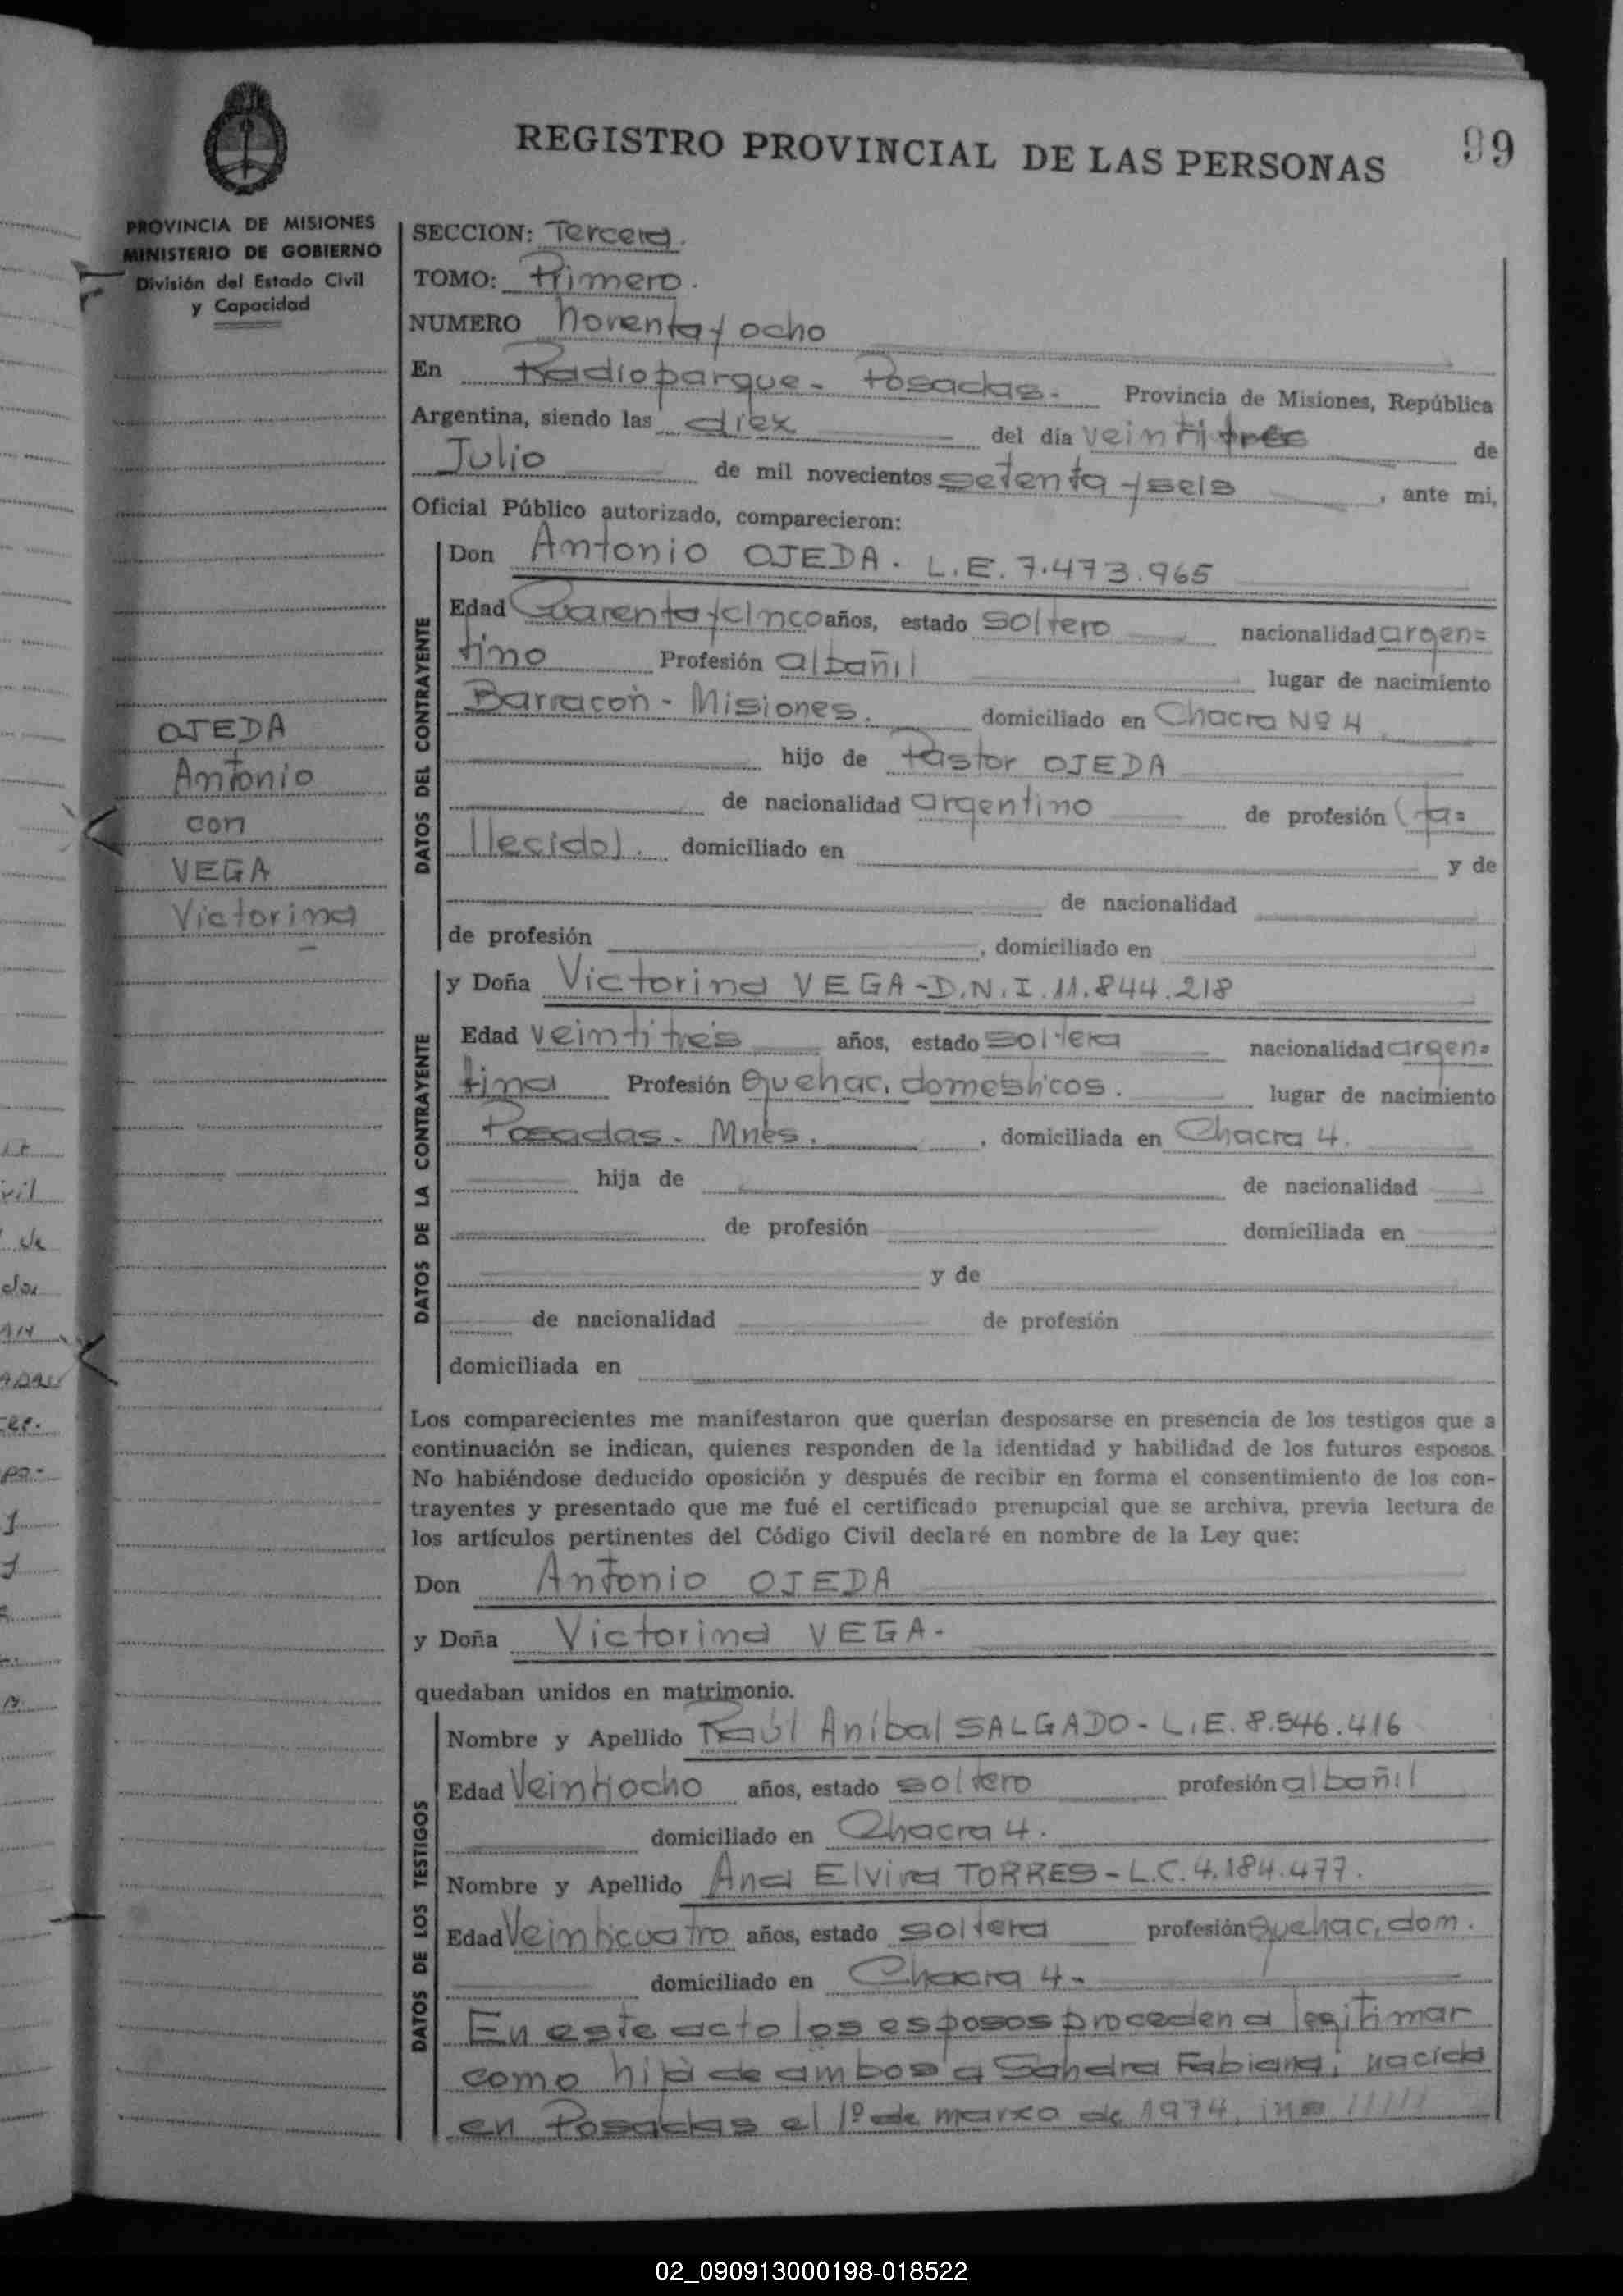 REGISTRO PROVINCIAL DE LAS PERSONAS
99
PROVINCIA DE MISIONES
MINISTERIO DE GOBIERNO
División del Estado Civil
y Capacidad
OJEDA
Antonio
con
VEGA
Victorina
SECCION: Tercera.
TOMO: Primero.
NUMERO noventa y ocho
En Radioparque - Posadas - Provincia de Misiones, República
Argentina, siendo las diez del día veintitrés de
Julio de mil novecientos setenta y seis, ante mi,
Oficial Público autorizado, comparecieron:
DATOS DEL CONTRAYENTE
Don Antonio OJEDA. L.E. 7.473.965
Edad Cuarenta y cinco años, estado soltero nacionalidad argen=
tino Profesión albañil lugar de nacimiento
Barracón - Misiones. domiciliado en Chacra Nº 4
hijo de Pastor OJEDA
de nacionalidad argentino de profesión (fa=
llecido). domiciliado en y de
de nacionalidad
de profesión , domiciliado en
DATOS DE LA CONTRAYENTE
y Doña Victorina VEGA - D.N.I. 11.844.218
Edad veintitrés años, estado soltera nacionalidad argen=
tina Profesión quehac. domésticos. lugar de nacimiento
Posadas. Mnes. , domiciliada en Chacra 4.
hija de de nacionalidad
de profesión domiciliada en
y de
de nacionalidad de profesión
domiciliada en
Los comparecientes me manifestaron que querían desposarse en presencia de los testigos que a
continuación se indican, quienes responden de la identidad y habilidad de los futuros esposos.
No habiéndose deducido oposición y después de recibir en forma el consentimiento de los con-
trayentes y presentado que me fué el certificado prenupcial que se archiva, previa lectura de
los artículos pertinentes del Código Civil declaré en nombre de la Ley que:
Don Antonio OJEDA
y Doña Victorina VEGA.
quedaban unidos en matrimonio.
DATOS DE LOS TESTIGOS
Nombre y Apellido Raúl Aníbal SALGADO - L.E. 8.546.416
Edad Veintiocho años, estado soltero profesión albañil
domiciliado en Chacra 4.
Nombre y Apellido Ana Elvira TORRES - L.C. 4.184.477.
Edad Veinticuatro años, estado soltera profesión quehac. dom.
domiciliado en Chacra 4.
En este acto los esposos proceden a legitimar
como hija de ambos a Sandra Fabiana, nacida
en Posadas el 1º de marzo de 1974, ins
02_090913000198-018522